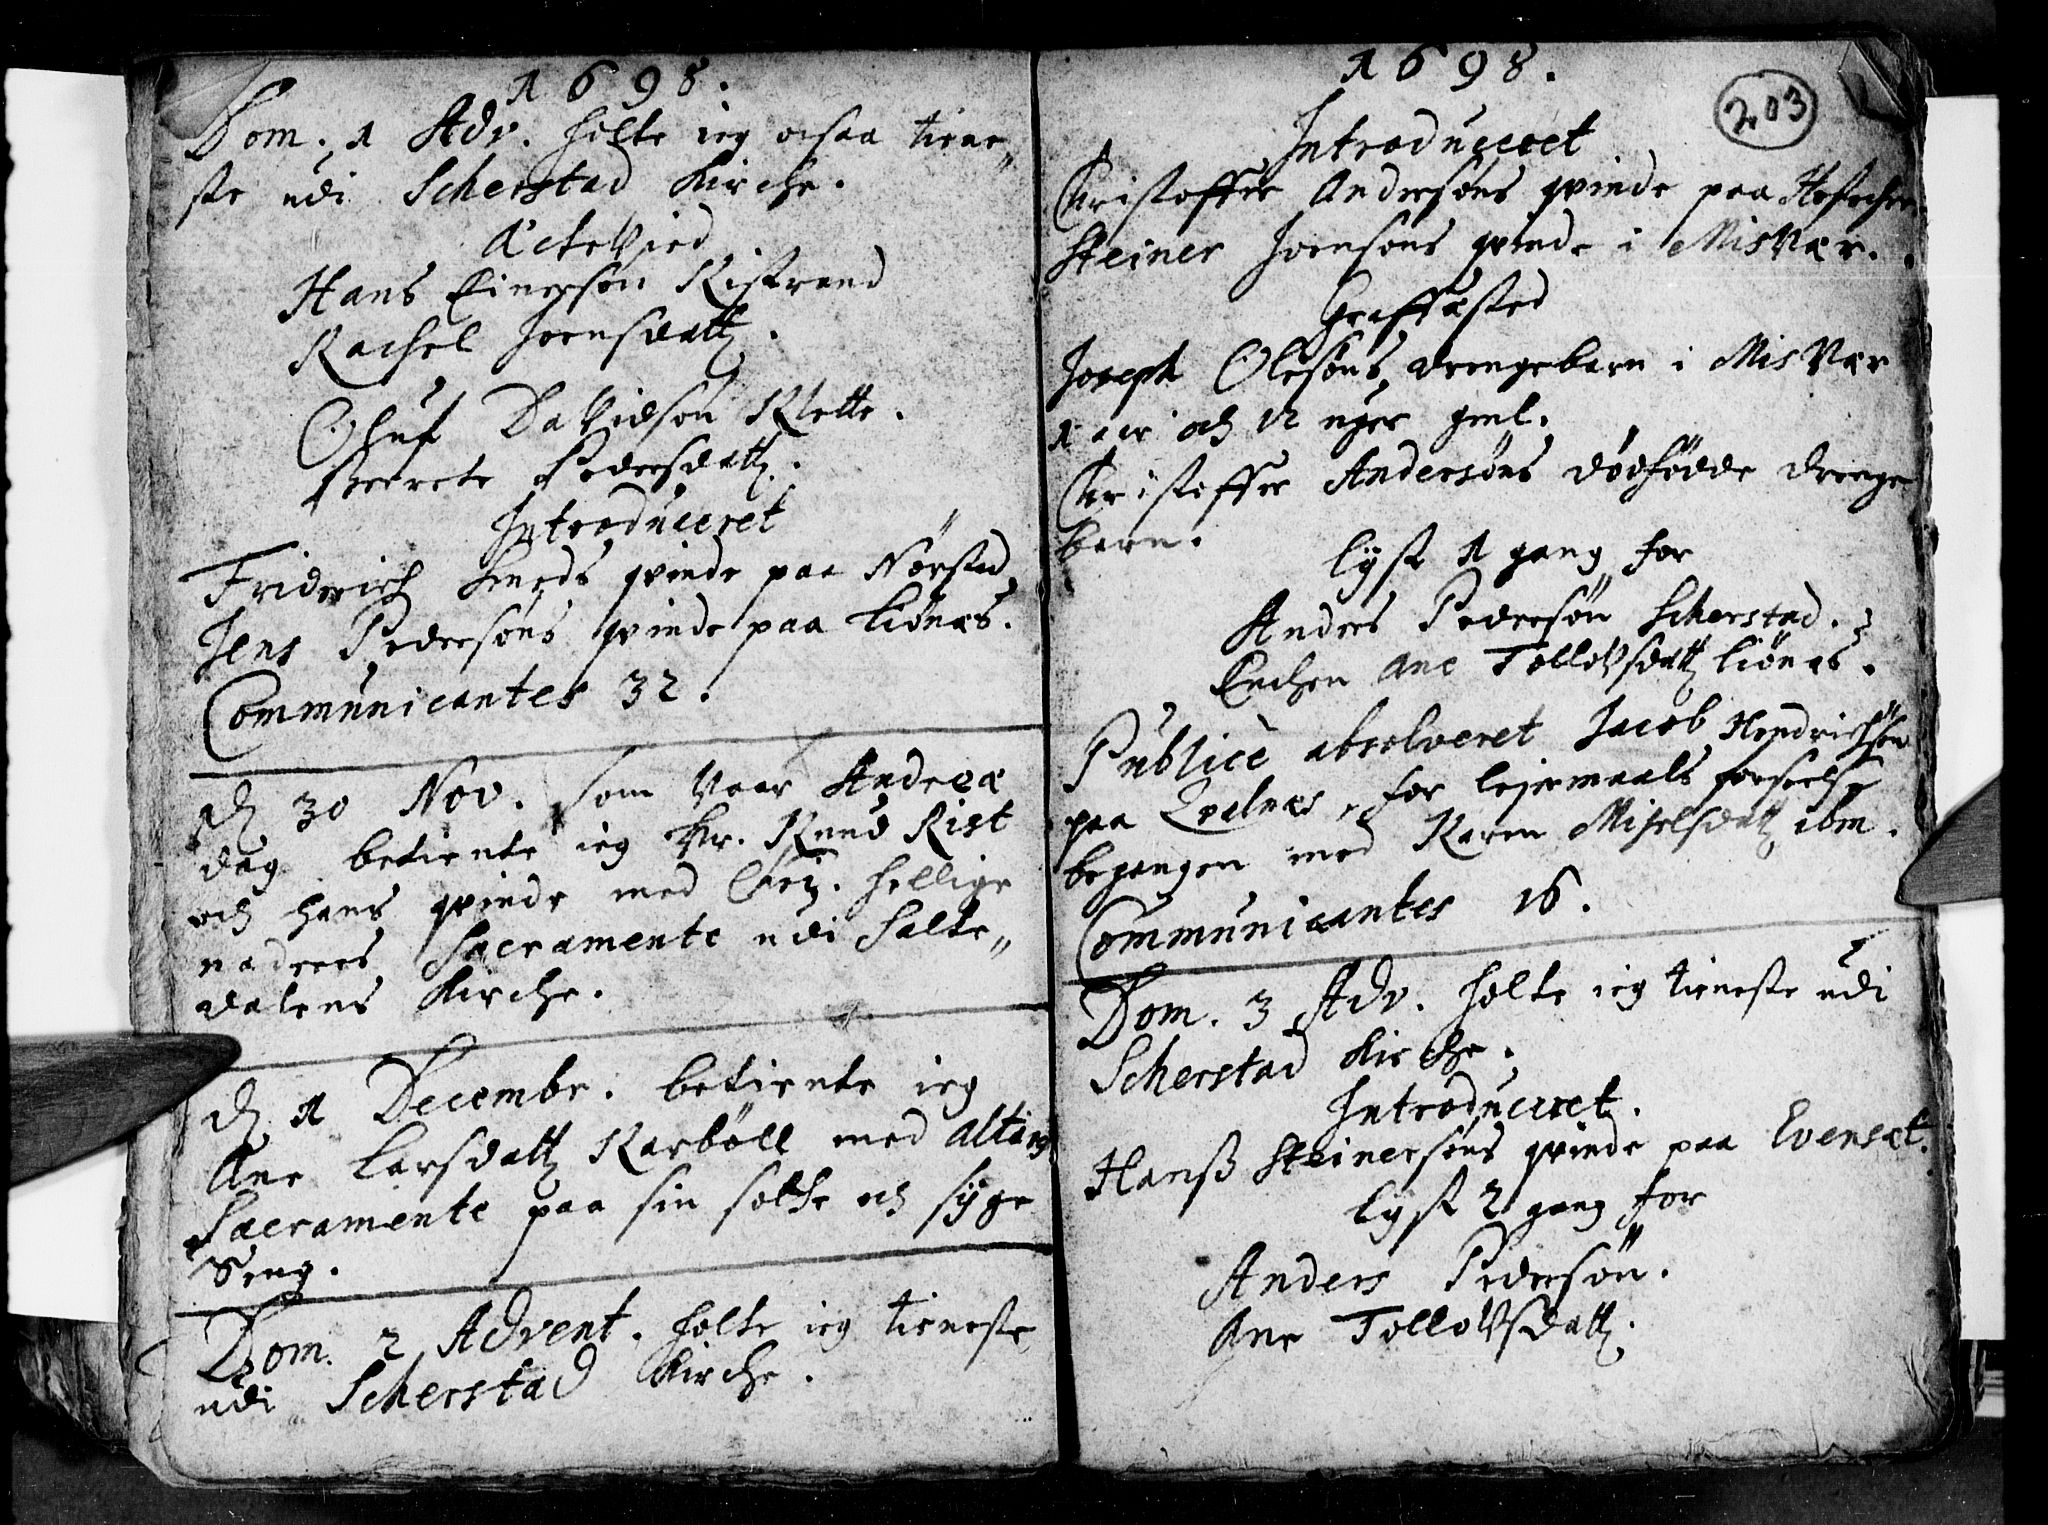 1698.
Dom. 1 Adv. holte ieg ocsaa tiene„
ste udi Scherstad Kirche.
Ectevied
Hans Einersøn Ristrand
Rachel Joensdattr.
Oluf Davidsøn Klette.
Beerete Pedersdattr.
Introduceret
Friderich Smeds qvinde paa Nørstad
Jens Pedersøns qvinde paa Liønæs.
Communicantes 32.
dn 30 Nov. som vaar Andreæ
dag betiente ieg Hr. Knud Rist
och hans qvinde med hellige
nadvers Sacramente udi Salte„
dalens Kirche.
dn 1 Decembr. betiente ieg
Ane Larsdattr Karbøll med altars
Sacramente paa sin sotte och syge
Seng.
Dom. 2 Advent. holte ieg tieneste
udi Scherstad Kirche.
1698.
203
Introduceret
Christoffer Andersøns qvinde paa
Steiner Joensøns qvinde i Misvær.
Graffæsted
Joseph Olesøns drengebarn i Misvær
1 aar och 12 uger gml.
Christoffer Andersøns dødfødde drenge
barn.
Lyst 1 gang for
Anders Pedersøn Scherstad.
Enchen Ane Tollovsdattr Liønæs.
Publicè absolveret Jacob Hendrichsøn
paa for lejermaals forseelse
begangen med Karen Michelsdattr ibm.
Communicantes 16.
Dom. 3 Adv. holte ieg tieneste udi
Scherstad Kirche.
Introduceret.
Hanß Steinersøns qvinde paa Evenset.
Lyst 2 gang for
Anders Pedersøn.
Ane Tollovsdattr.